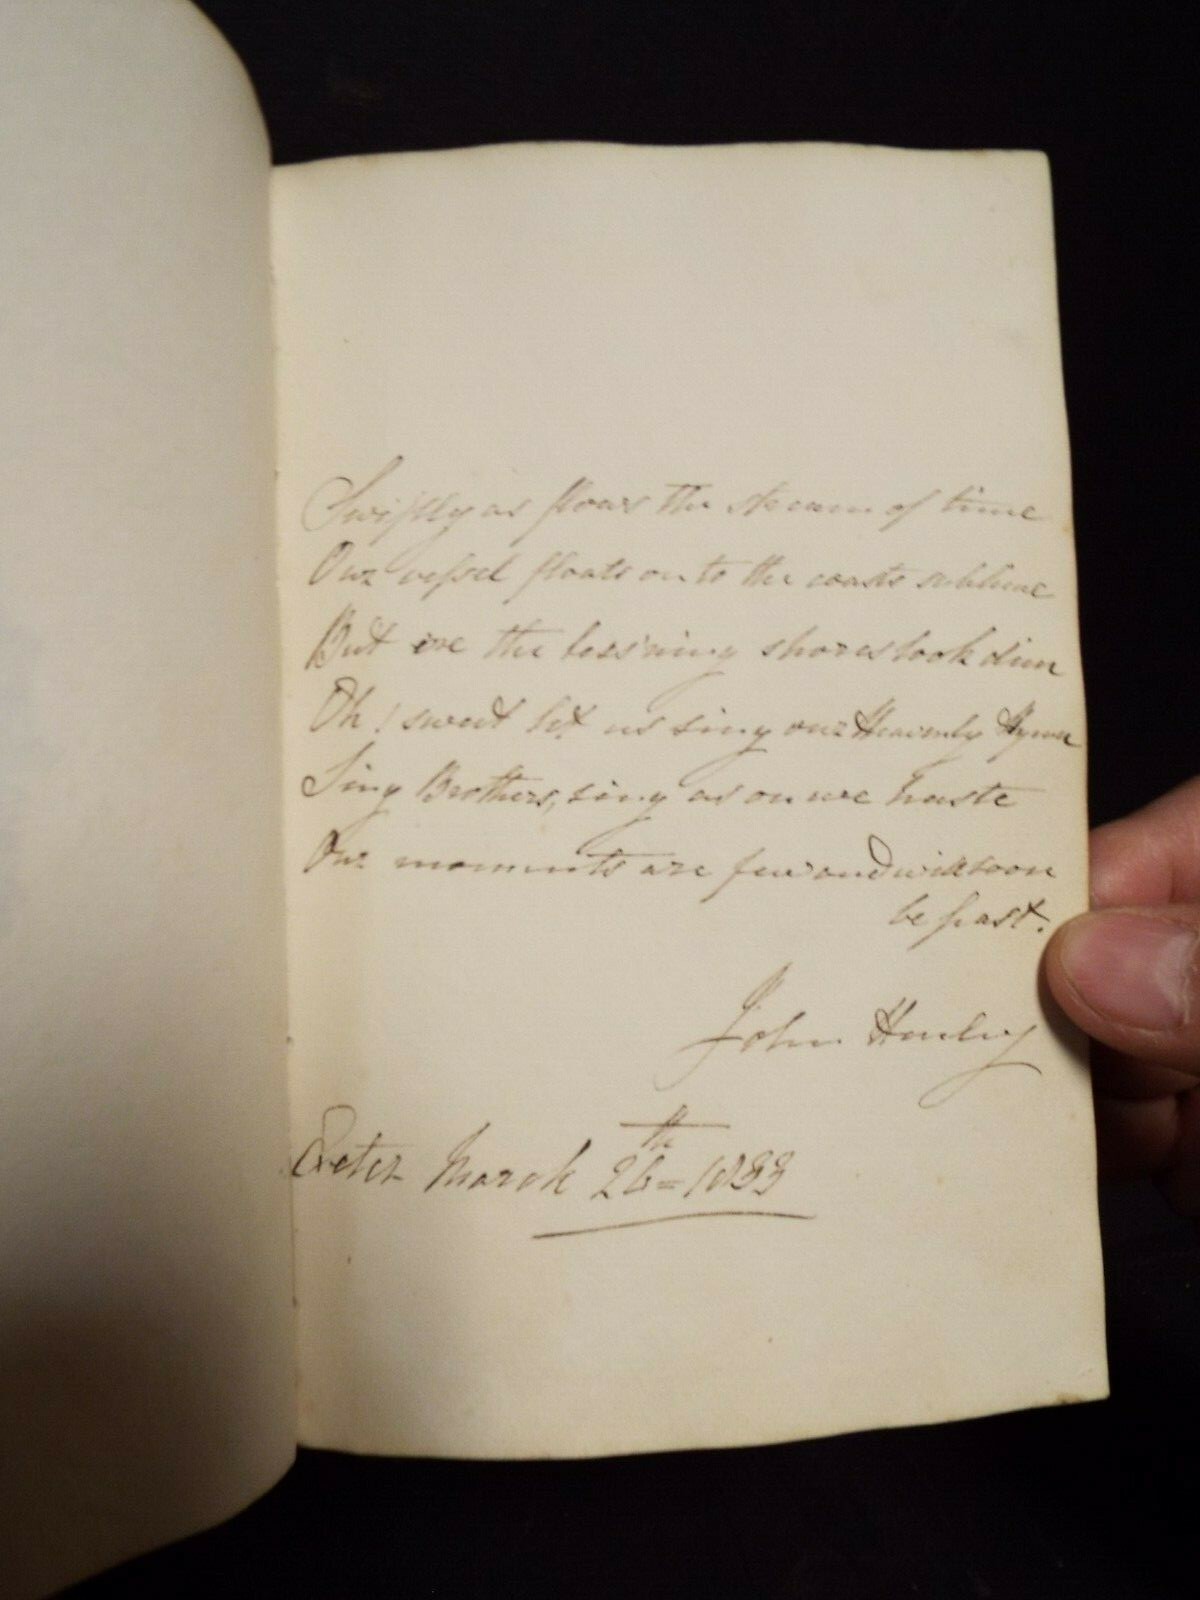 Swiftly as flows the stream of time
Our vessel floats on to the coasts sublime
But ere the less'ning shores look dim
Oh! sweet let us sing our Heavenly Hymn
Sing Brothers, sing as on we haste
Our moments are few and will soon
be past.
John Henley
Exeter March 26th 1833